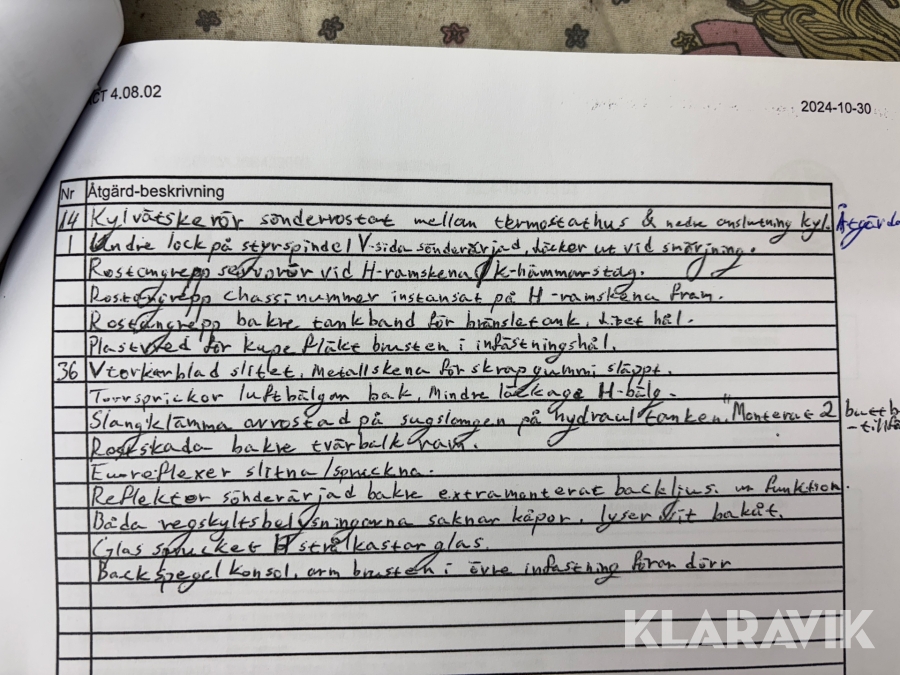 CT 4.08.02
2024-10-30
Nr Åtgärd-beskrivning
14 Kylvätskerör sönderrostat mellan termostathus & nedre anslutning kyl. Åtgärda
1 Undre lock på styrspindel V-sida sönderärjad, läcker ut vid smörjning.
Rostangrepp servorör vid H-ramskena / k-hämmarstag.
Rostangrepp chassinummer instansat på H-ramskena fram.
Rostangrepp bakre tankband för bränsletank, litet hål.
Plastved för kupefläkt brusten i infästningshål.
36 Vtorkarblad slitet, Metallskena för skrapgummi släppt.
Torrsprickor luftbälgan bak, Mindre läckage H-bälg.
Slangklämma avrostad på sugslangen på hydraultanken. "Monterat 2
Rostskada bakre tvärbalk ram.
Euroflexer slitna/spruckna.
Reflektor sönderärjad bakre extramonterat backljus. ur funktion.
Båda regskyltsbelysningarna saknar kåpor. lyser vit bakåt.
Glas sprucket H strålkastarglas.
Backspegelkonsol, arm brusten i övre infästning förardörr
KLARAVIK